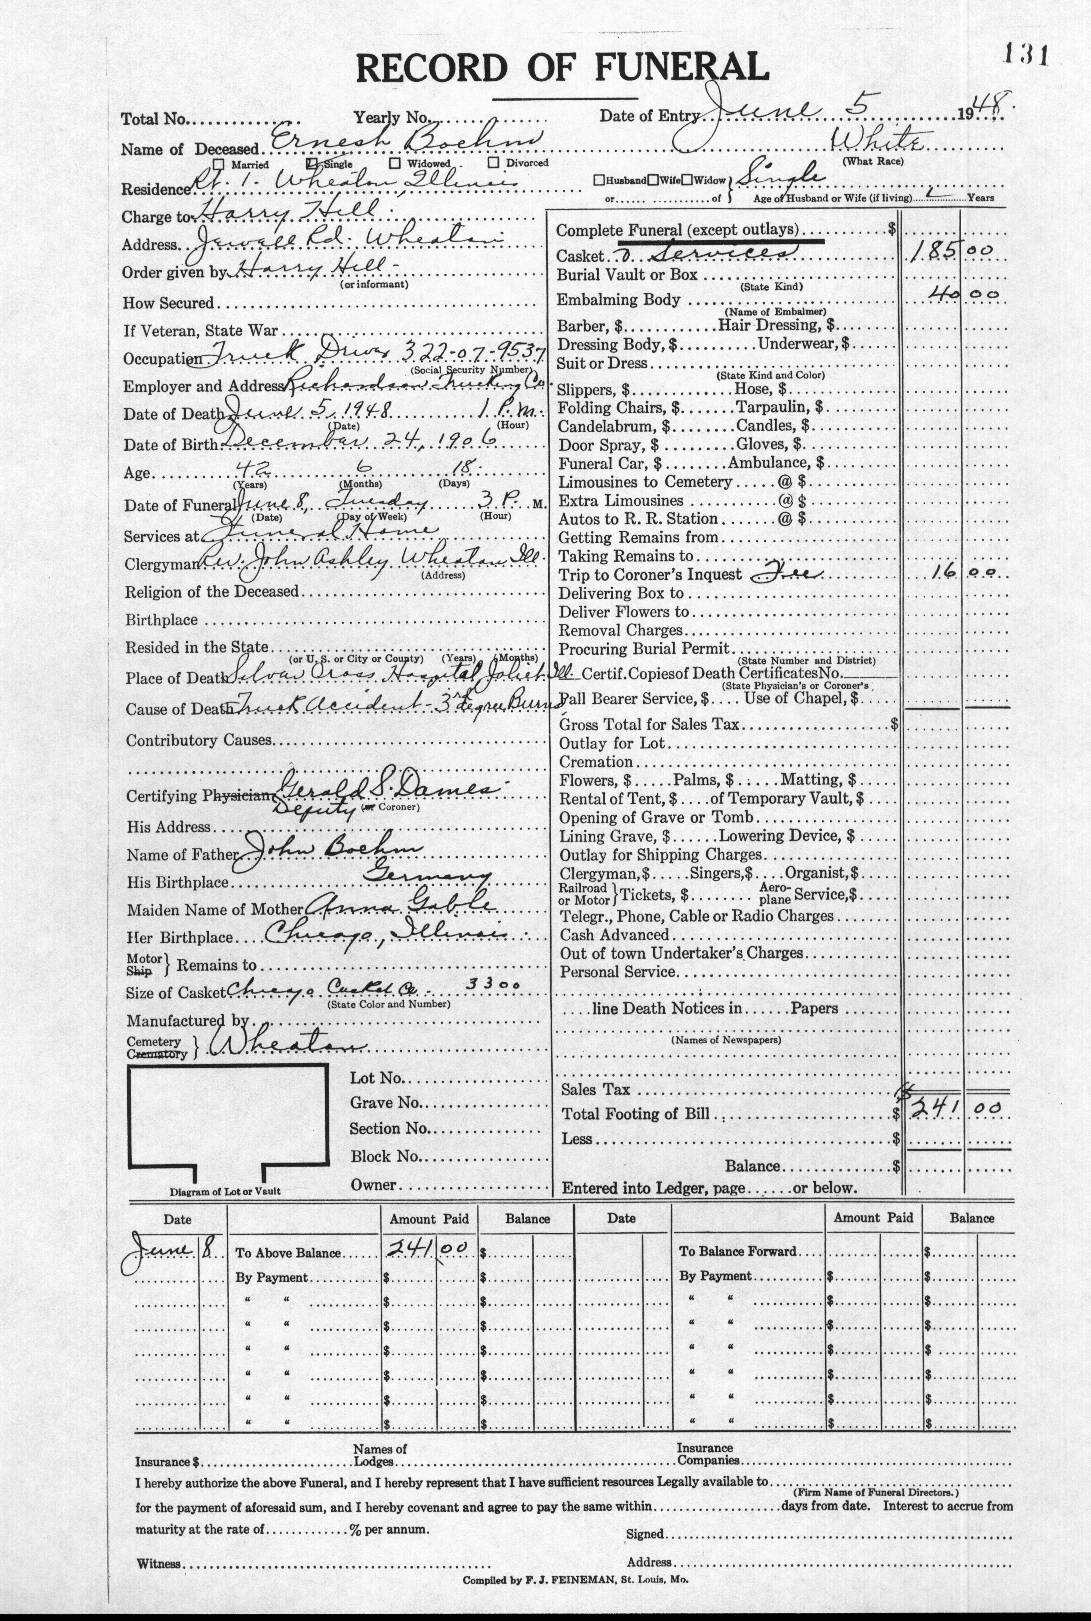 131
RECORD OF FUNERAL
Total No. Yearly No. Date of Entry June 5 1948.
Name of Deceased Ernest Boehm White
Married Single Widowed Divorced (What Race)
Residence Rt. 1. Wheaton, Illinois Husband Wife Widow } Single
or of } Age of Husband or Wife (if living) Years
Charge to Harry Hill
Address Jewell Rd. Wheaton
Order given by Harry Hill -
(or informant)
How Secured
If Veteran, State War
Occupation Truck Driver 322-07-9537
(Social Security Number)
Employer and Address Richardson Trucking Co.
Date of Death June 5, 1948 1 P.M.
(Date) (Hour)
Date of Birth December 24, 1906
Age 42 6 18
(Years) (Months) (Days)
Date of Funeral June 8, Tuesday 3 P. M.
(Date) (Day of Week) (Hour)
Services at Funeral Home
Clergyman Rev. John Ashley Wheaton Ill
(Address)
Religion of the Deceased
Birthplace
Resided in the State
(or U. S. or City or County) (Years) (Months)
Place of Death Silver Cross Hospital, Joliet Ill.
Cause of Death Truck Accident - 3rd degree Burns
Contributory Causes
Certifying Physician Gerald S. Dames
Deputy (or Coroner)
His Address
Name of Father John Boehm
His Birthplace Germany
Maiden Name of Mother Anna Gable
Her Birthplace Chicago, Illinois
Motor Ship } Remains to
Size of Casket Chicago Casket Co. 3300
(State Color and Number)
Manufactured by
Cemetery Crematory } Wheaton
Lot No.
Grave No.
Section No.
Block No.
Owner
Diagram of Lot or Vault
Complete Funeral (except outlays) $
Casket & Services 185 00
Burial Vault or Box
(State Kind)
Embalming Body 40 00
(Name of Embalmer)
Barber, $ Hair Dressing, $
Dressing Body, $ Underwear, $
Suit or Dress
(State Kind and Color)
Slippers, $ Hose, $
Folding Chairs, $ Tarpaulin, $
Candelabrum, $ Candles, $
Door Spray, $ Gloves, $
Funeral Car, $ Ambulance, $
Limousines to Cemetery @ $
Extra Limousines @ $
Autos to R. R. Station @ $
Getting Remains from
Taking Remains to
Trip to Coroner's Inquest Fee 16 00
Delivering Box to
Deliver Flowers to
Removal Charges
Procuring Burial Permit
(State Number and District)
Certif. Copies of Death Certificates No.
(State Physician's or Coroner's
Pall Bearer Service, $ Use of Chapel, $
Gross Total for Sales Tax $
Outlay for Lot
Cremation
Flowers, $ Palms, $ Matting, $
Rental of Tent, $ of Temporary Vault, $
Opening of Grave or Tomb
Lining Grave, $ Lowering Device, $
Outlay for Shipping Charges
Clergyman, $ Singers, $ Organist, $
Railroad or Motor } Tickets, $ Aero-plane Service, $
Telegr., Phone, Cable or Radio Charges
Cash Advanced
Out of town Undertaker's Charges
Personal Service
line Death Notices in Papers
(Names of Newspapers)
Sales Tax $
Total Footing of Bill $ 241 00
Less $
Balance $
Entered into Ledger, page or below.
Date Amount Paid Balance Date Amount Paid Balance
June 8 To Above Balance 241 00 $ To Balance Forward $
By Payment $ $ By Payment $ $
" " $ $ " " $ $
" " $ $ " " $ $
" " $ $ " " $ $
" " $ $ " " $ $
" " $ $ " " $ $
" " $ $ " " $ $
Insurance $ Names of Lodges Insurance Companies
I hereby authorize the above Funeral, and I hereby represent that I have sufficient resources Legally available to
(Firm Name of Funeral Directors.)
for the payment of aforesaid sum, and I hereby covenant and agree to pay the same within days from date. Interest to accrue from
maturity at the rate of % per annum.
Signed
Witness Address
Compiled by F. J. FEINEMAN, St. Louis, Mo.